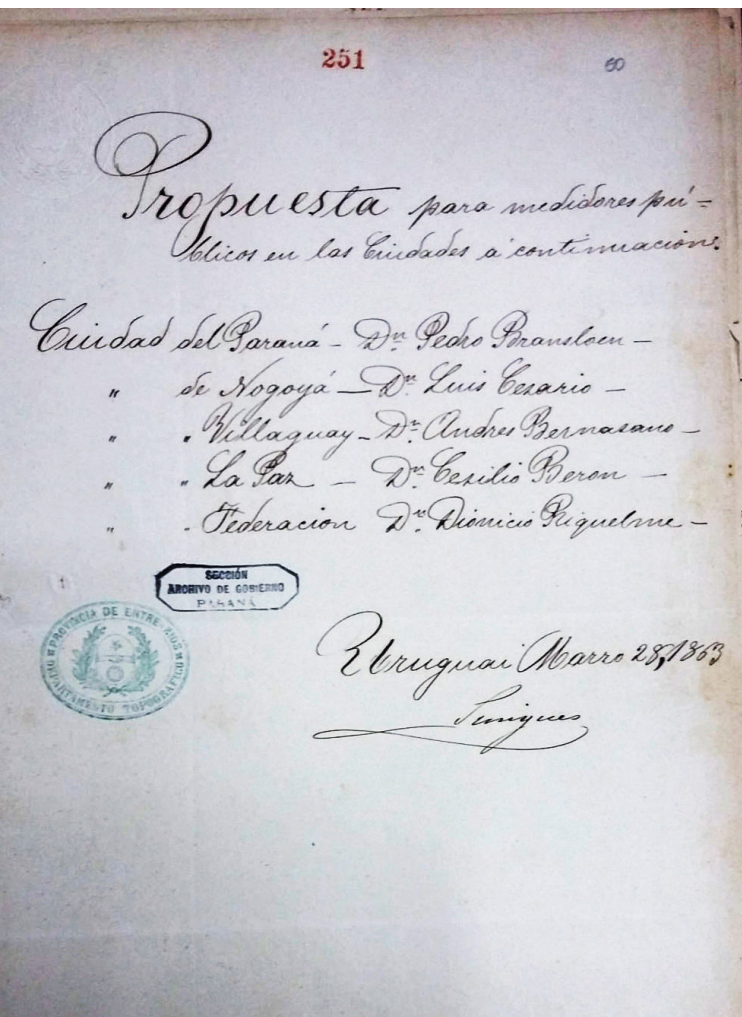 251
60
Propuesta para medidores pú=
blicos en las Ciudades á continuacion:
Ciudad del Paraná - Dn. Pedro Bransloen -
" de Nogoyá - Dn. Luis Cezario -
" " Villaguay - Dn. Andres Bernasano -
" " La Paz - Dn. Cezilio Beron -
" " Federacion Dn. Dionicio Riquelme -
SECCIÓN
ARCHIVO DE GOBIERNO
PARANÁ
PROVINCIA DE ENTRE-RIOS
DEPARTAMENTO TOPOGRAFICO
Uruguai Marzo 28,1863